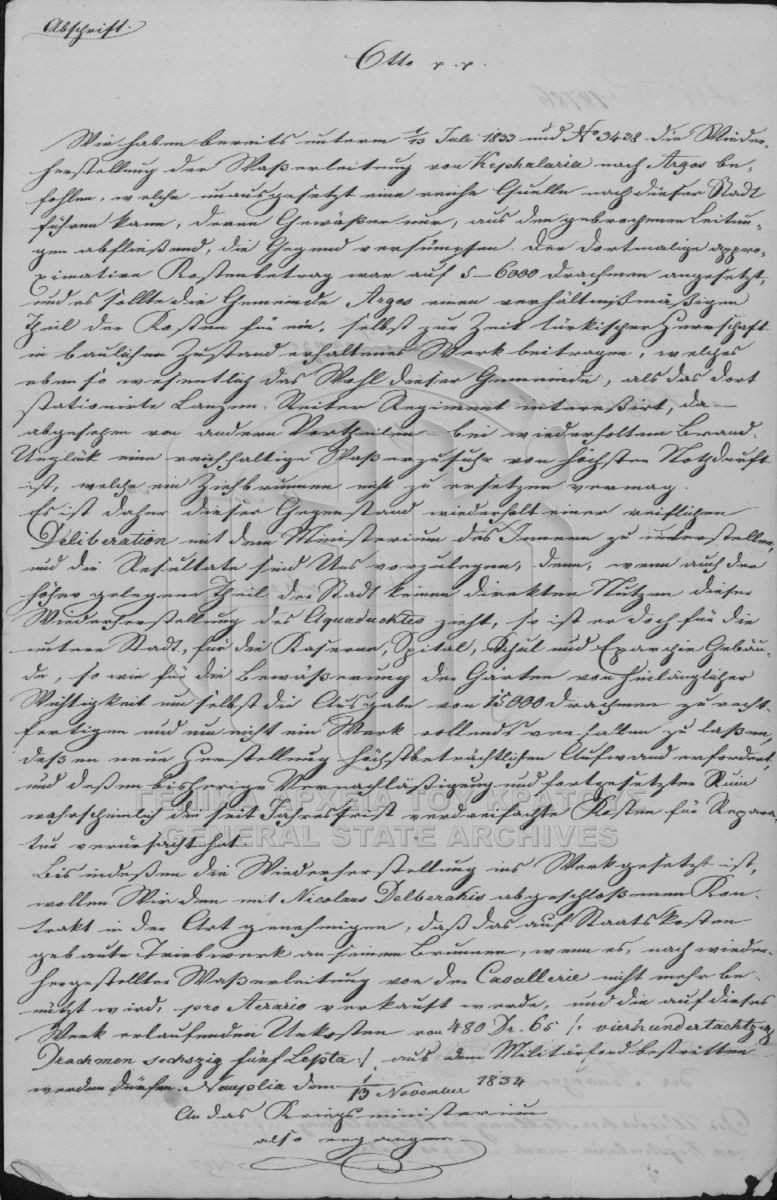 Abschrift.
Otto p. p.
Wir haben bereits unterm 1/13 Juli 1833 und No 3438 die Wieder-
herstellung der Waßerleitung von Kephalaria nach Argos be-
fohlen, welche unausgesetzt eine reiche Quelle nach dieser Stadt
führen kann, deren Gewäßer nur, aus den gebrochenen Leitun-
gen abfließend, die Gegend versümpfen. Der dortmalige appro-
ximative Kostenbetrag war auf 5-6000 Drachmen angesetzt,
und es sollte die Gemeinde Argos einen verhältnißmäßigen
Theil der Kosten für ein, selbst zur Zeit türkischer Herrschaft
in baulichen Zustand erhaltenes Werk beitragen, welches
eben so wesentlich das Wohl dieser Gemeinde, als das dort
stationirte Lanzen-Reiter Regiment intereßirt, da
abgesehen von andern Vortheilen bei wiederholtem Brand-
Unglük eine reichhaltige Waßerzufuhr von höchster Nothdurft
ist, welche ein Ziehbrunnen nicht zu ersetzen vermag.
Es ist daher dieser Gegenstand wiederholt einer reiflichen
Deliberation mit dem Ministerium des Innern zu unterstellen,
und die Resultate sind Uns vorzulegen, denn, wenn auch der
höher gelegene Theil der Stadt keinen direkten Nutzen dieser
Wiederherstellung des Aquaducktes zieht, so ist er doch für die
untere Stadt, für die Kaserne, Spital, Schul und Eparchie Gebäu-
de, so wie für die Bewäßerung der Gärten von hinlänglicher
Wichtigkeit um selbst die Ausgabe von 15000 Drachmen zu recht-
fertigen und um nicht ein Werk vollends verfallen zu laßen,
deßen neue Herstellung höchstbeträchtlichen Aufwand erfordert,
und deßen bisherige Vernachläßigung und fortgesetzter Ruin
wahrscheinlich die seit Jahresfrist verdreifachte Kosten für Repara-
tur verursacht hat.
ΓΕΝΙΚΑ ΑΡΧΕΙΑ ΤΟΥ ΚΡΑΤΟΥΣ
GENERAL STATE ARCHIVES
Bis indeßen die Wiederherstellung ins Werk gesetzt ist,
wollen Wir den mit Nicolaus Delberakis abgeschloßenen Kon-
trakt in der Art genehmigen, daß das auf Staatskosten
gebaute Triebwerk an seinem Brunnen, wenn es, nach wieder-
hergestellter Waßerleitung von der Cavallerie nicht mehr be-
nützt wird, pro Aerario verkauft werde, und die auf dieses
Werk erlaufenden Unkosten von 480 Dr. 65 /: vierhundertachtzig
Drachmen sechszig fünf Lepta :/ aus dem Militärfond bestritten
werden dürfen. Nauplia den 1/13 November 1834
An das Kriegsministerium
also ergangen